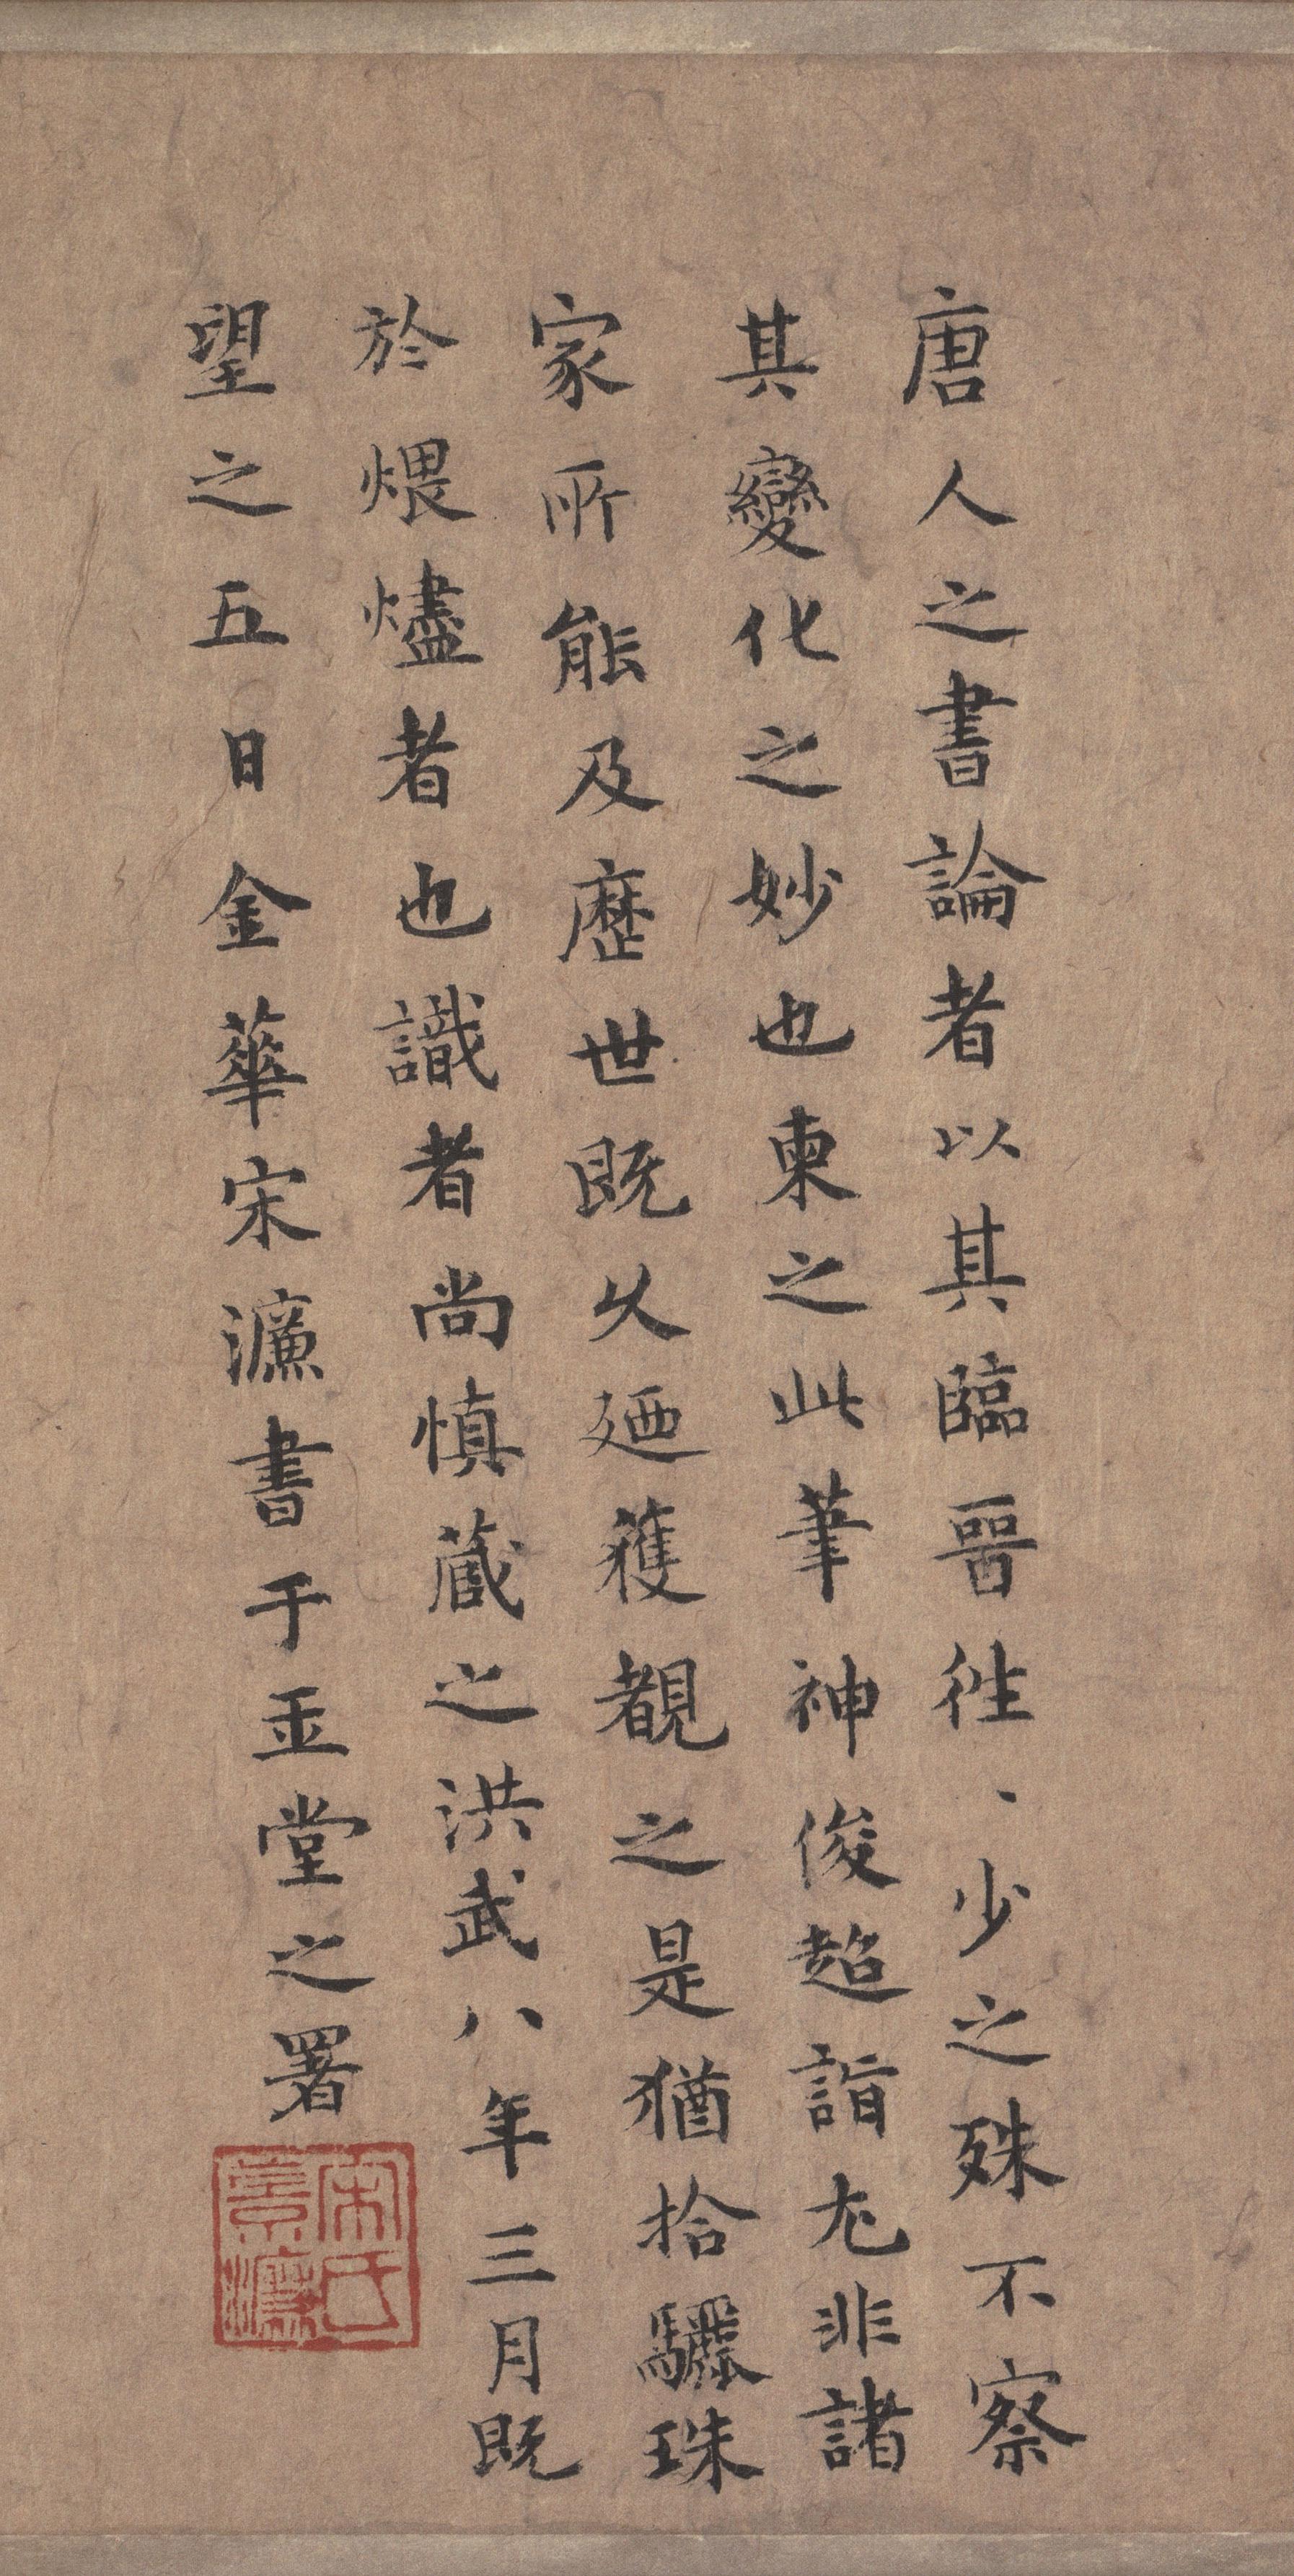 唐人之書論者以其臨晉徃、少之殊不察
其變化之妙也柬之此筆神俊超詣尤非諸
家所能及歷世既久廼獲覩之是猶拾驪珠
於煨燼者也識者尚慎藏之洪武八年三月既
望之五日金華宋濂書于玉堂之署
宋氏
景濂